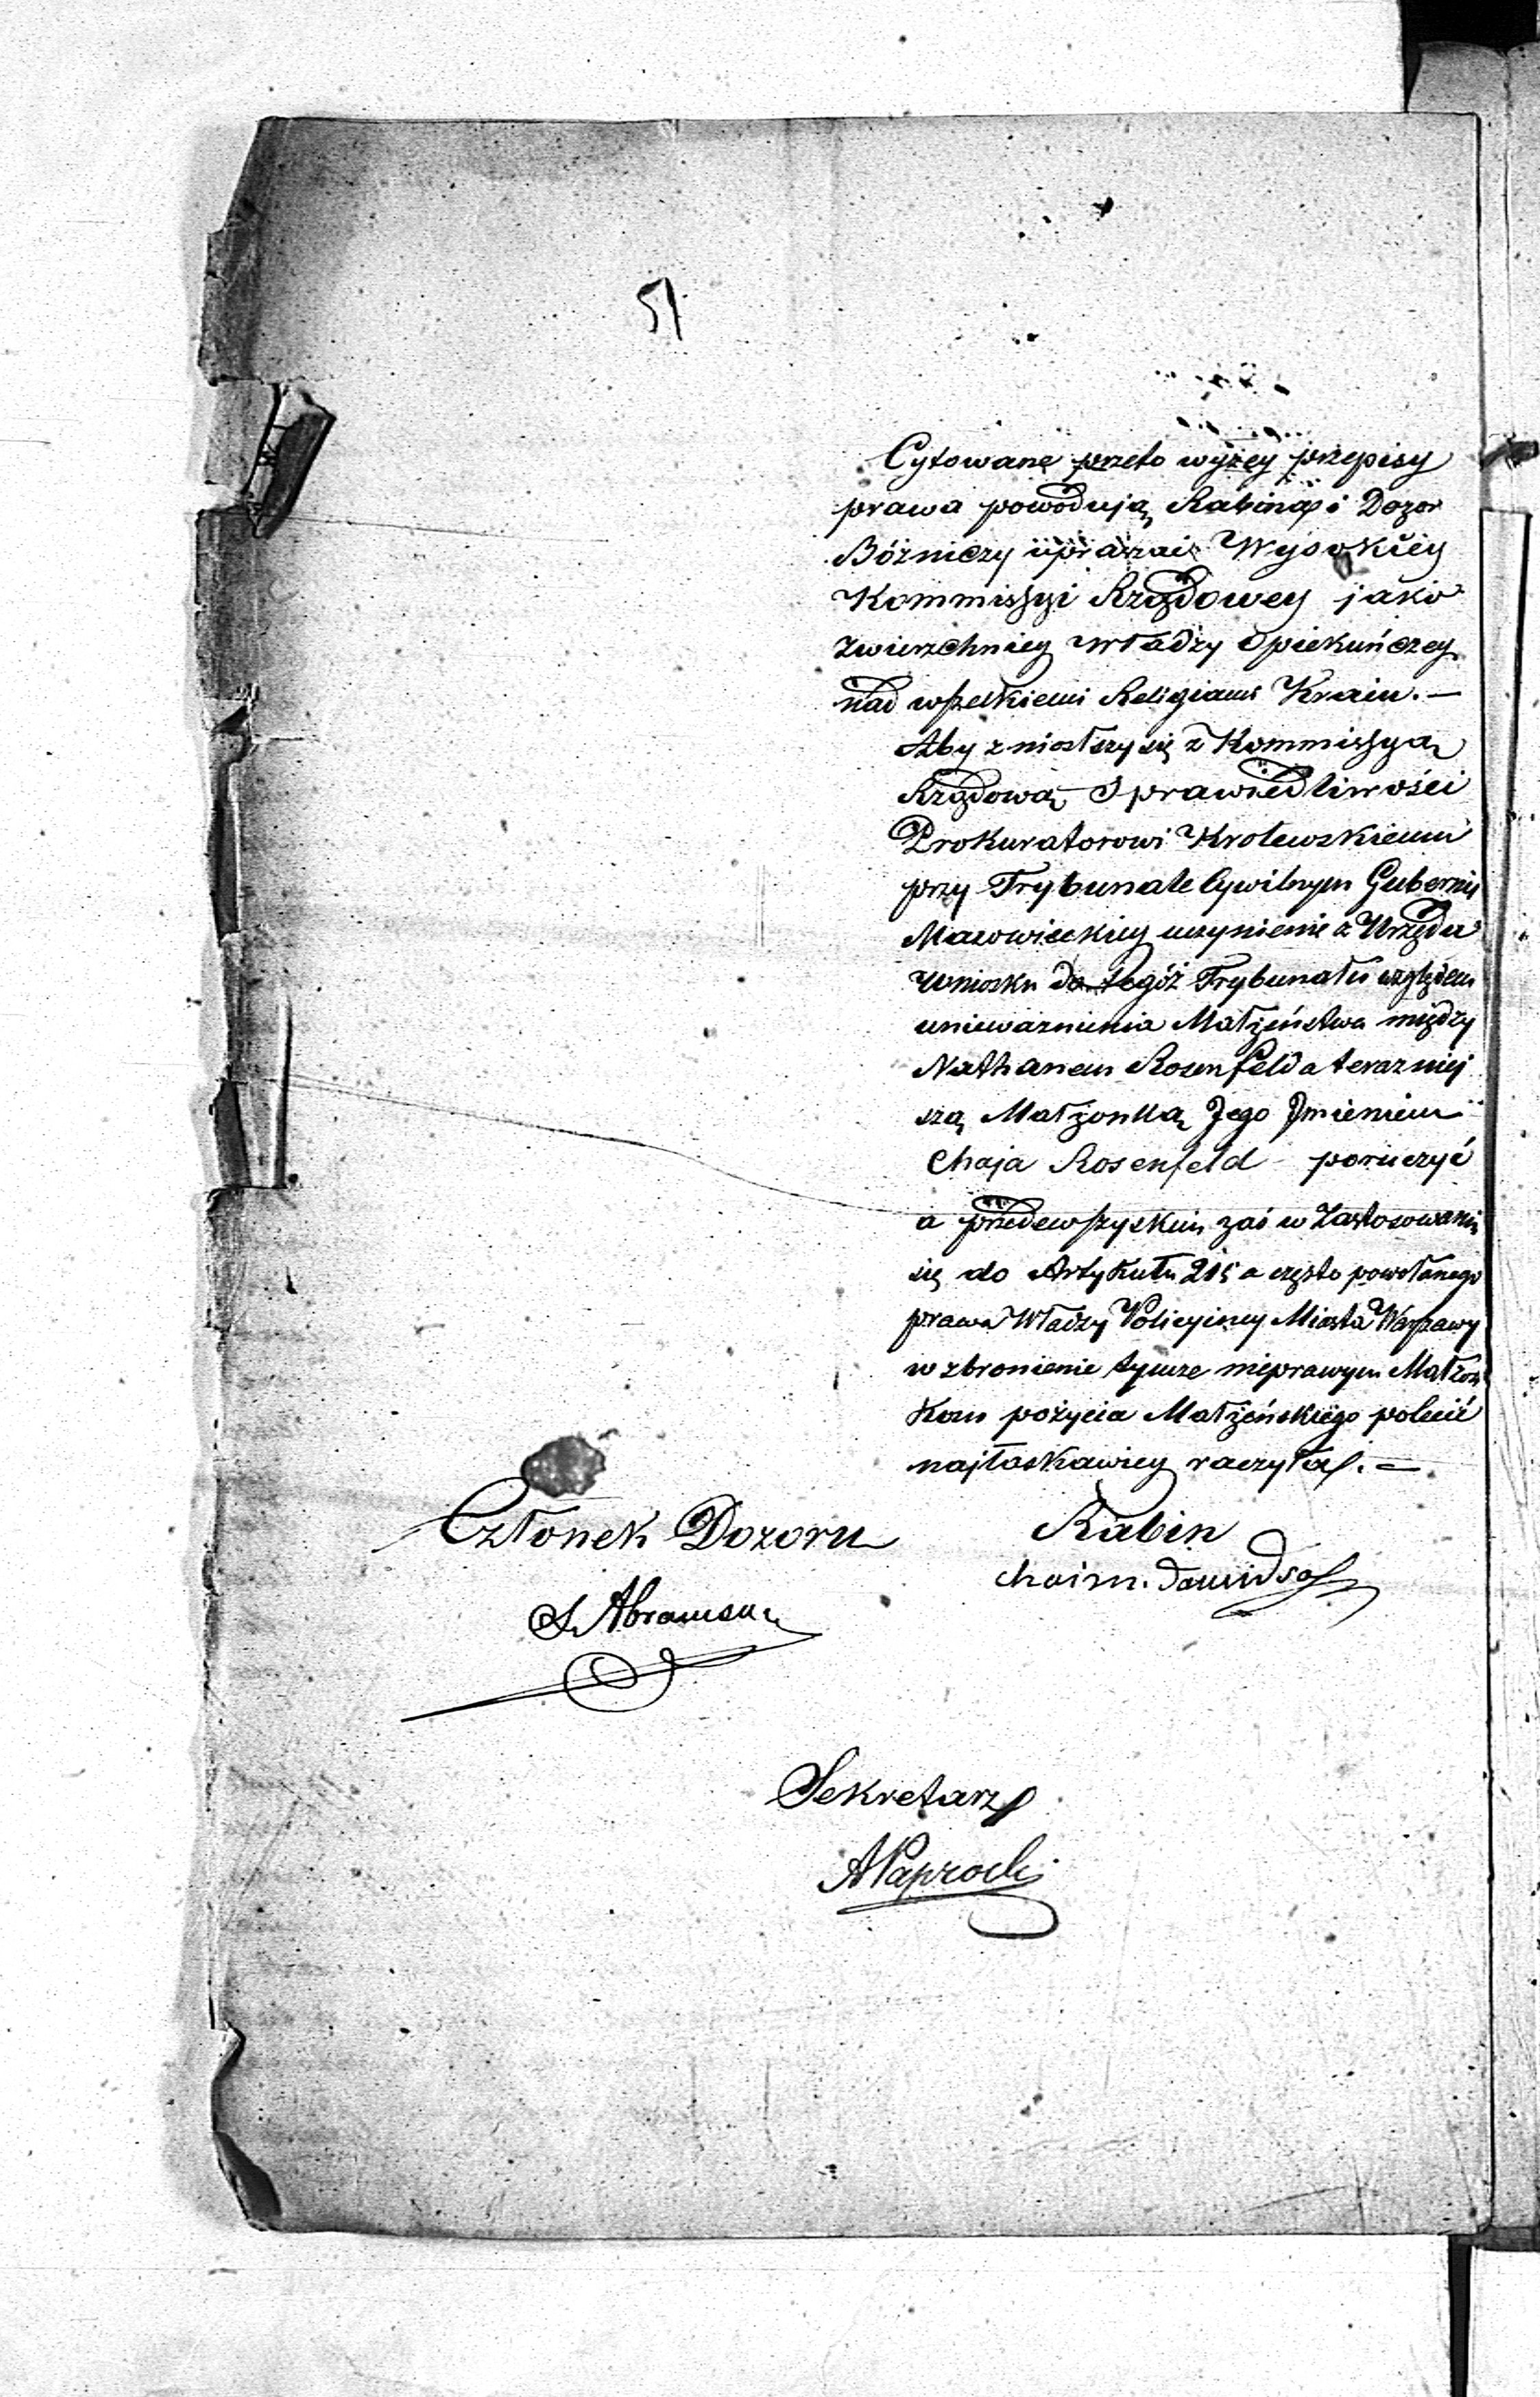 51
Cytowane przeto wyżey przepisy
prawa powodują Rabina i Dozor
Bóżniczy upraszać Wysokiey
Kommissyi Rządowey jako
Zwierzchniey Władzy Opiekuńczey
nad wszelkiemi Religiami Kraiu. —
Aby zniosłszy się z Kommissyą
Rządową Sprawiedliwości
Prokuratorowi Krolewskiemu
przy Trybunale Cywilnym Gubernii
Mazowieckiey uczynienie z Urzędu
Wniosku do tegóż Trybunału względem
unieważnienia Małżeństwa między
Nathanem Rosenfeld a terazniej
szą Małżonką Jego Jmieniem
Chaja Rosenfeld poruczyć
a przedewszyskim zaś w Zastosowaniu
się do Artykułu 215 a często powołanego
prawa Władzy Policyiney Miasta Warszawy
wzbronienie tymże nieprawym Małżon
kom pożycia Małżeńskiego polecić
najłaskawiey raczyła. —
Członek Dozoru
Rabin
Chaim. Dawidsohn
Abramson
Sekretarz
A Paprocki